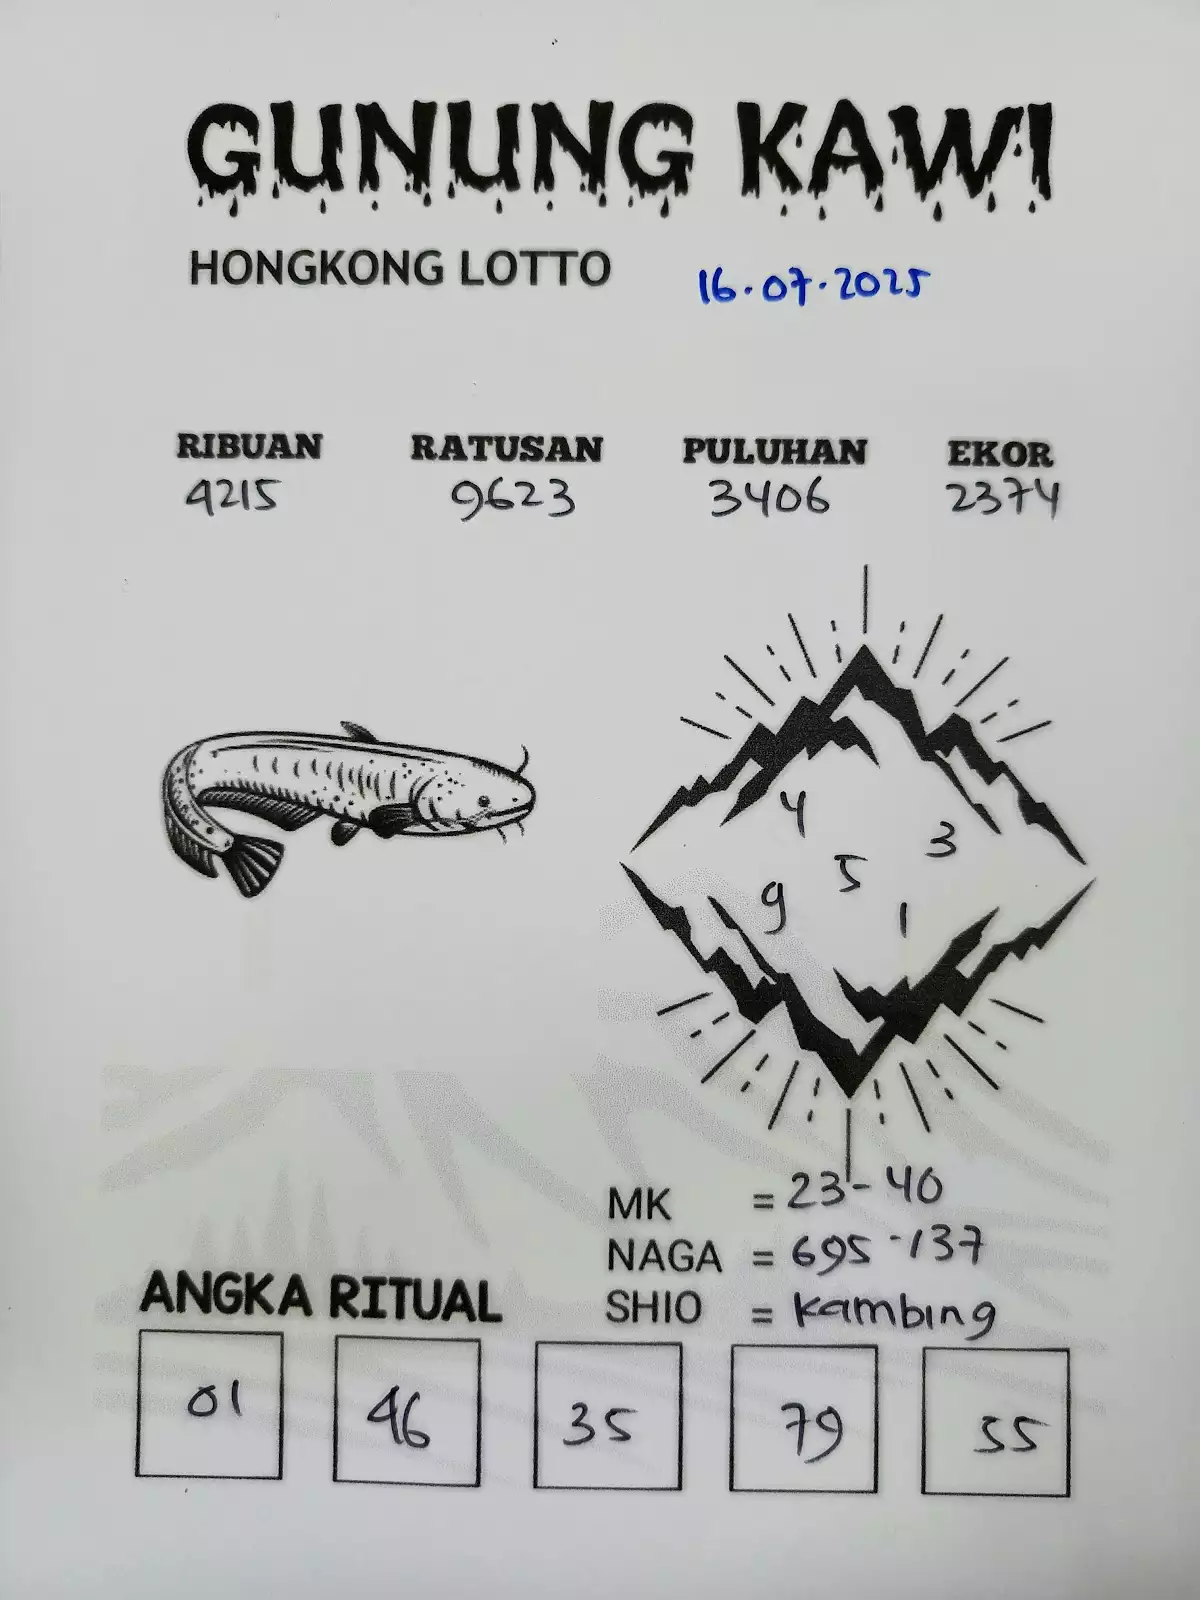 GUNUNG KAWI
HONGKONG LOTTO 16.07.2025
RIBUAN RATUSAN PULUHAN EKOR
4215 9623 3406 2374
4
3
5
9
1
MK = 23-40
NAGA = 695-137
SHIO = Kambing
ANGKA RITUAL
01 46 35 79 55